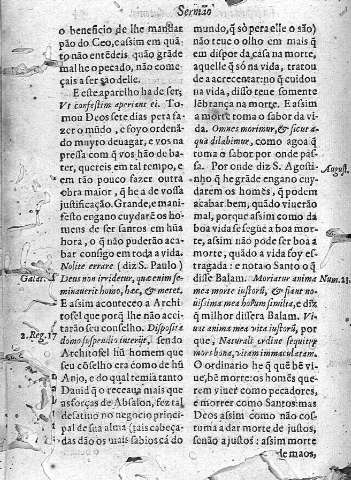 Sermão
o beneficio de lhe mandar
pão do Ceo, assim em quã
to não entẽdeis quão grãde
mal he o pecado, não come-
çais a ser são delle.
E este aparelho ha de ser,
Vt confestim aperiant ei. To-
mou Deos sete dias pera fa-
zer o mũdo, & foyo ordenã-
do muyto deuagar, e vos na
pressa com q̃ vos hão de ba-
ter, quereis em tal tempo, e
em tão pouco fazer outra
obra maior, q̃ he a de vossa
justificação. Grande, e mani-
festo engano cuydarẽ os ho-
mens de ser santos em hũa
hora, o q̃ não puderão aca-
bar consigo em toda a vida.
Nolite errare (diz S. Paulo)
Galat. 6
Deus non irridetur, quæ enim se-
minauerit homo, hæc, & metet.
E assim aconteceo a Archi-
tofel que porq̃ lhe não accei-
tarão seu conselho. Disposita
2. Reg. 17
domo suspendio interijt, sendo
Architofel hũ homem que
seu cõselho era como de hũ
Anjo, e do qual temia tanto
Dauid q̃ o receaua mais que
as forças de Absalon, fez tal
desatino no negocio princi-
pal de sua alma (tais cabeça-
das dão os mais sabios cá do
mundo, q̃ só pera elle o são)
não teue o olho em mais q̃
em dispor da casa na morte,
aquelle q̃ só na vida, tratou
de a acrecentar: no q̃ cuidou
na vida, disso teue somente
lẽbrança na morte. E assim
a morte toma o sabor da vi-
da. Omnes morimur, & sicut a-
qua dilabimur, como agoa q̃
toma o sabor por onde pas-
sa. Por onde diz S. Agosti-
August.
nho q̃ he grande engano cuy-
darem os homẽs, q̃ podem
acabar bem, quãdo viuerão
mal, porque assim como da
boa vida se segue a boa mor-
te, assim não pode ser boa a
morte, quãdo a vida foy es-
tragada: e notao Santo o q̃
disse Balam. Moriatur anima
Num. 23.
mea morte iustorũ, & fiant no-
uissima mea horum similia, e diz
q̃ milhor dissera Balam. Vi-
uat anima mea vita iustorũ, por
que, Naturali ordine sequitur
mors bona, vitam immaculatam.
O ordinario he q̃ quẽ bẽ vi-
ue, bẽ morre: os homẽs que-
rem viuer como pecadores,
e morrer como Santos: mas
Deos assim como não cos-
tuma a dar morte de justos,
senão a justos: assim morte
de maos,